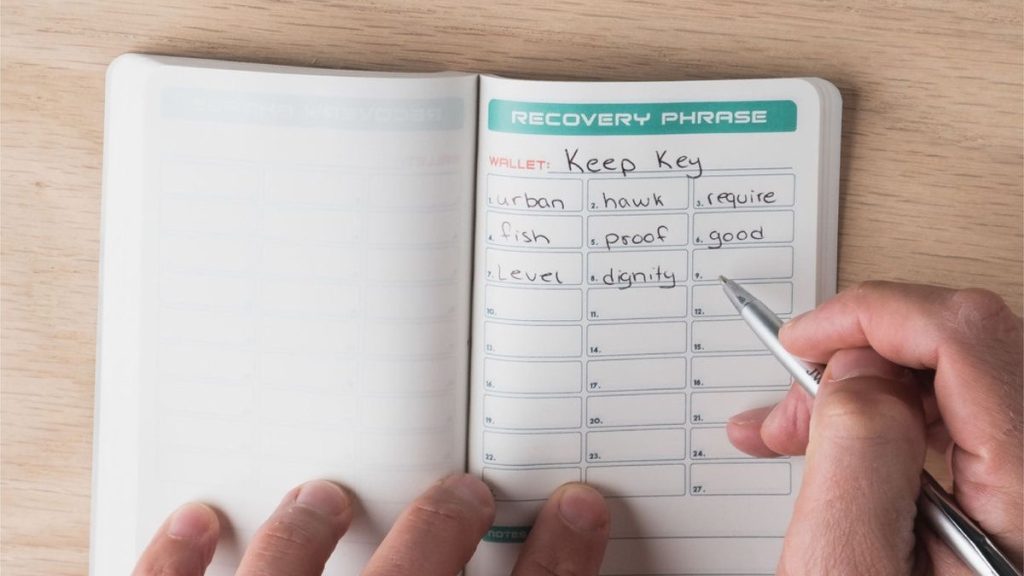 RECOVERY PHRASE
WALLET: Keep Key
1. urban 2. hawk 3. require
4. fish 5. proof 6. good
7. Level 8. dignity 9.
10. 11. 12.
13. 14. 15.
16. 17. 18.
19. 20. 21.
22. 23. 24.
27.
NOTES